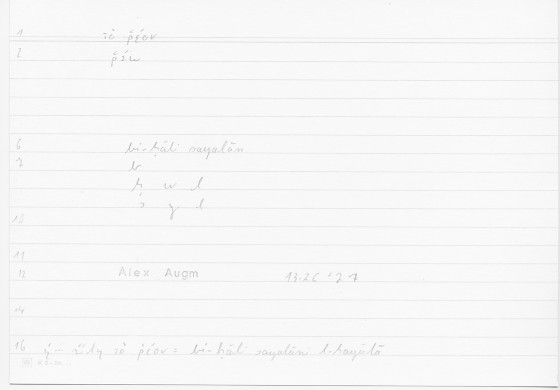 1 τὸ ῥέον
2 ῥέω
6 bi-ḥāli sayalān
7 b
ḥ w l
s y l
10
11
12 Alex Augm
14
16 ὕλη τὸ ῥέον = bi-ḥāli sayalāni l-hayūlā